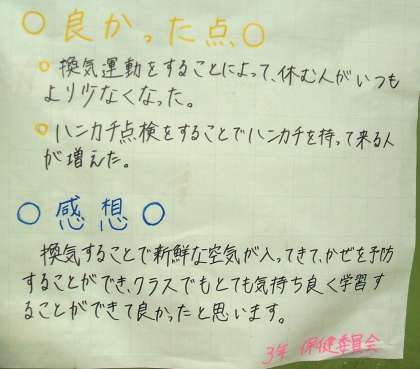 ○良かった点○
○換気運動をすることによって、休む人がいつも
より少なくなった。
○ハンカチ点検をすることでハンカチを持って来る人
が増えた。
○感想○
換気することで新鮮な空気が入ってきて、かぜを予防
することができ、クラスでもとても気持ち良く学習す
ることができて良かったと思います。
3年 保健委員会